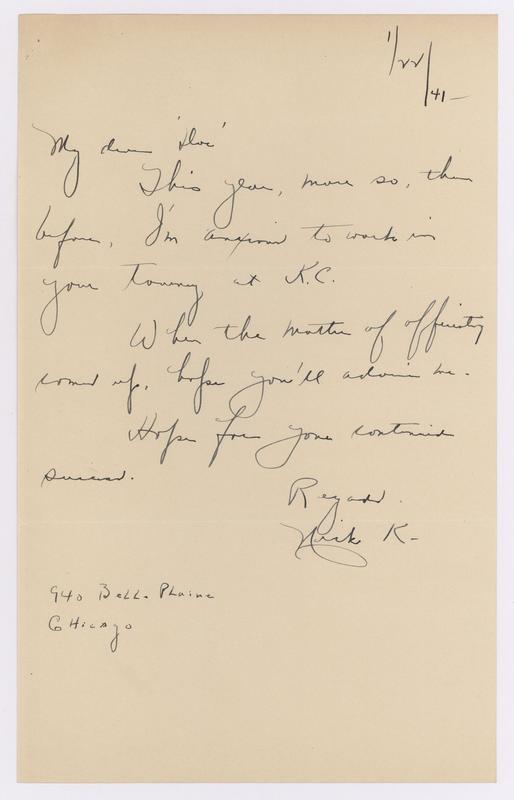 1/22/41 -
My dear 'Doc'
This year, more so, than
before, I'm anxious to work in
your tourney at K.C.
When the matter of officiating
comes up, hope you'll advise me.
Hope for your continued
success.
Regards.
Nick K-
940 Belle Plaine
Chicago